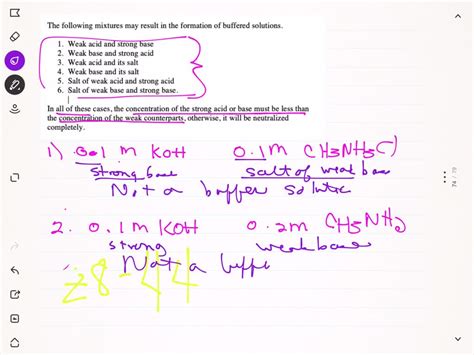 The following mixtures may result in the formation of buffered solutions.
1. Weak acid and strong base
2. Weak base and strong acid
3. Weak acid and its salt
4. Weak base and its salt
5. Salt of weak acid and strong acid
6. Salt of weak base and strong base.
In all of these cases, the concentration of the strong acid or base must be less than
the concentration of the weak counterparts, otherwise, it will be neutralized
completely.
1) 0.1 m KOH 0.1m CH3NH3Cl
strong base salt of weak base
Not a buffer solution
2. 0.1m KOH 0.2m CH3NH2
strong weak base
Not a buffe
28-44
74 / 79